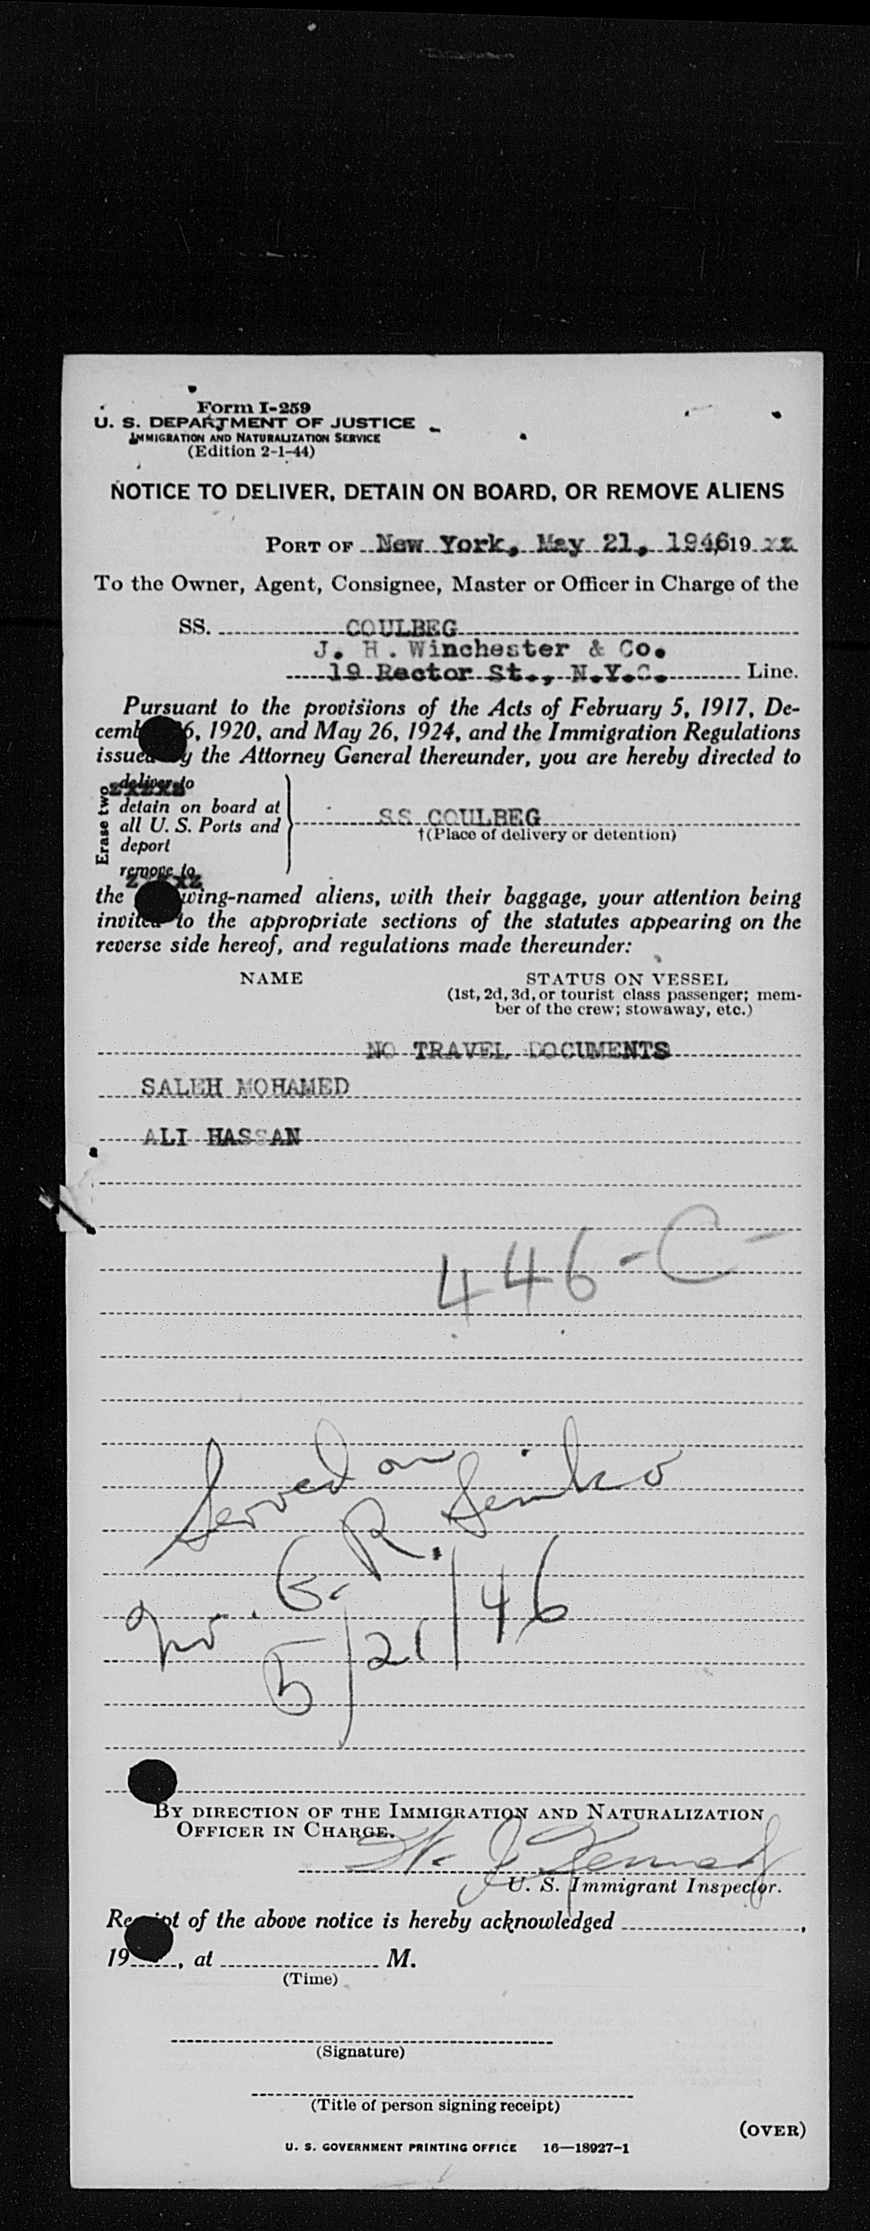 Form I-259
U. S. DEPARTMENT OF JUSTICE
IMMIGRATION AND NATURALIZATION SERVICE
(Edition 2-1-44)
NOTICE TO DELIVER, DETAIN ON BOARD, OR REMOVE ALIENS
PORT OF New York, May 21, 1946, 19 xx
To the Owner, Agent, Consignee, Master or Officer in Charge of the
SS. COULBEG
J. H. Winchester & Co.
19 Rector St., N.Y.C. Line.
Pursuant to the provisions of the Acts of February 5, 1917, De-
cemb 6, 1920, and May 26, 1924, and the Immigration Regulations
issued by the Attorney General thereunder, you are hereby directed to
Erase two
deliver to
detain on board at
all U. S. Ports and
deport
remove to
SS COULBEG
†(Place of delivery or detention)
the wing-named aliens, with their baggage, your attention being
invited to the appropriate sections of the statutes appearing on the
reverse side hereof, and regulations made thereunder:
NAME STATUS ON VESSEL
(1st, 2d, 3d, or tourist class passenger; mem-
ber of the crew; stowaway, etc.)
NO TRAVEL DOCUMENTS
SALEH MOHAMED
ALI HASSAN
446-C-
Served on
G. R.
5/21/46
BY DIRECTION OF THE IMMIGRATION AND NATURALIZATION
OFFICER IN CHARGE.
U. S. Immigrant Inspector.
Receipt of the above notice is hereby acknowledged ,
19 , at M.
(Time)
(Signature)
(Title of person signing receipt)
(OVER)
U. S. GOVERNMENT PRINTING OFFICE 16—18927-1